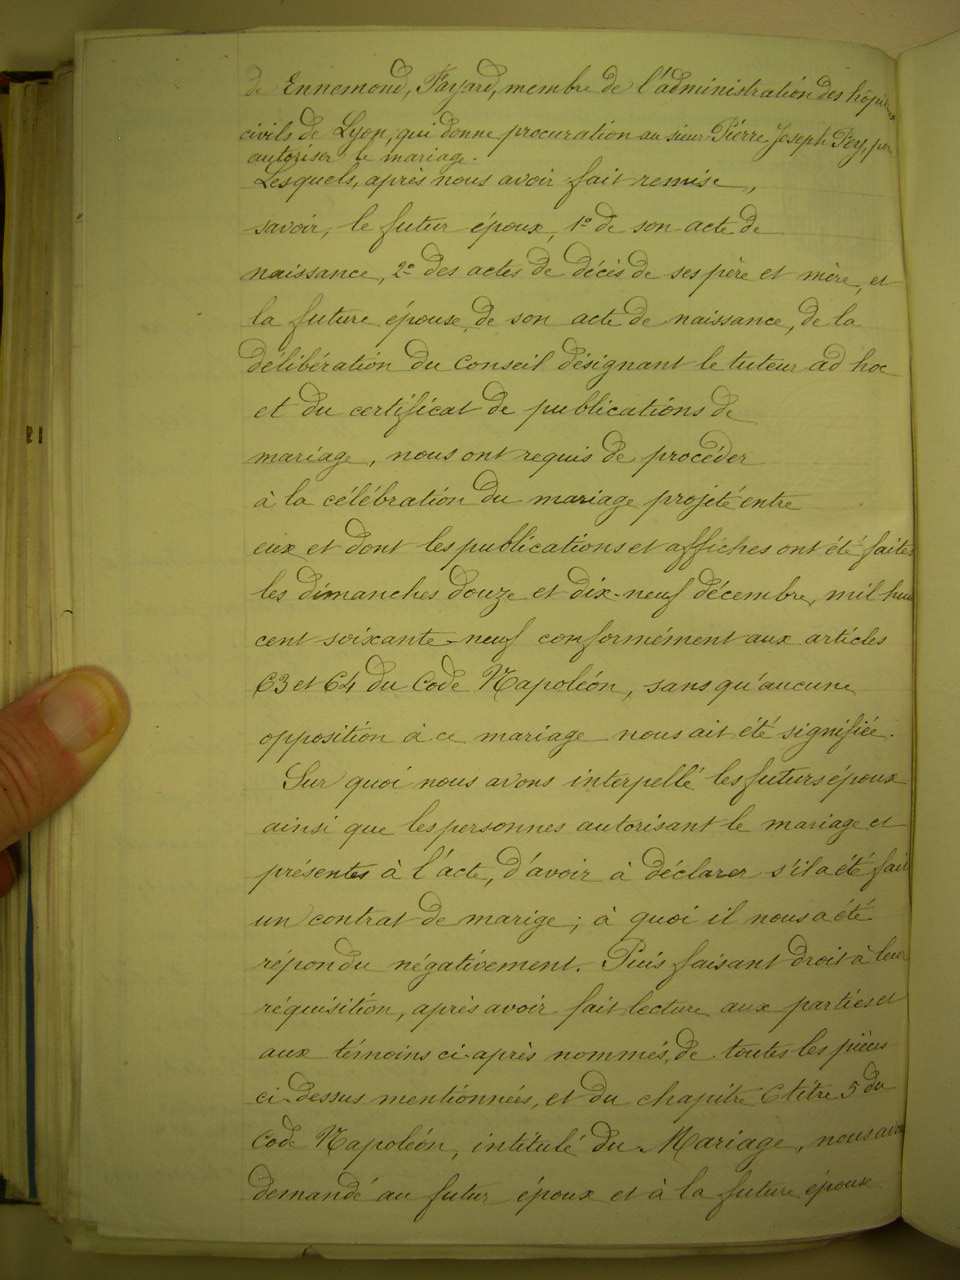 de Ennemond, Fayard, membre de l'administration des hôpitaux
civils de Lyon, qui donne procuration au sieur Pierre Joseph Pey, pour
autoriser le mariage.
Lesquels, après nous avoir fait remise,
savoir, le futur époux, 1° de son acte de
naissance, 2° des actes de décès de ses père et mère, et
la future épouse, de son acte de naissance, de la
délibération du conseil désignant le tuteur ad hoc
et du certificat de publications de
mariage, nous ont requis de procéder
à la célébration du mariage projeté entre
eux et dont les publications et affiches ont été faites
les dimanches douze et dix-neuf décembre, mil huit
cent soixante-neuf conformément aux articles
63 et 64 du Code Napoléon, sans qu'aucune
opposition à ce mariage nous ait été signifiée.
Sur quoi nous avons interpellé les futurs époux
ainsi que les personnes autorisant le mariage et
présentes à l'acte, d'avoir à déclarer s'il a été fait
un contrat de marige; à quoi il nous a été
répondu négativement. Puis faisant droit à leur
réquisition, après avoir fait lecture aux parties et
aux témoins ci-après nommés, de toutes les pièces
ci-dessus mentionnées, et du chapitre 6 titre 5 du
Code Napoléon, intitulé du Mariage, nous avons
demandé au futur époux et à la future épouse
21